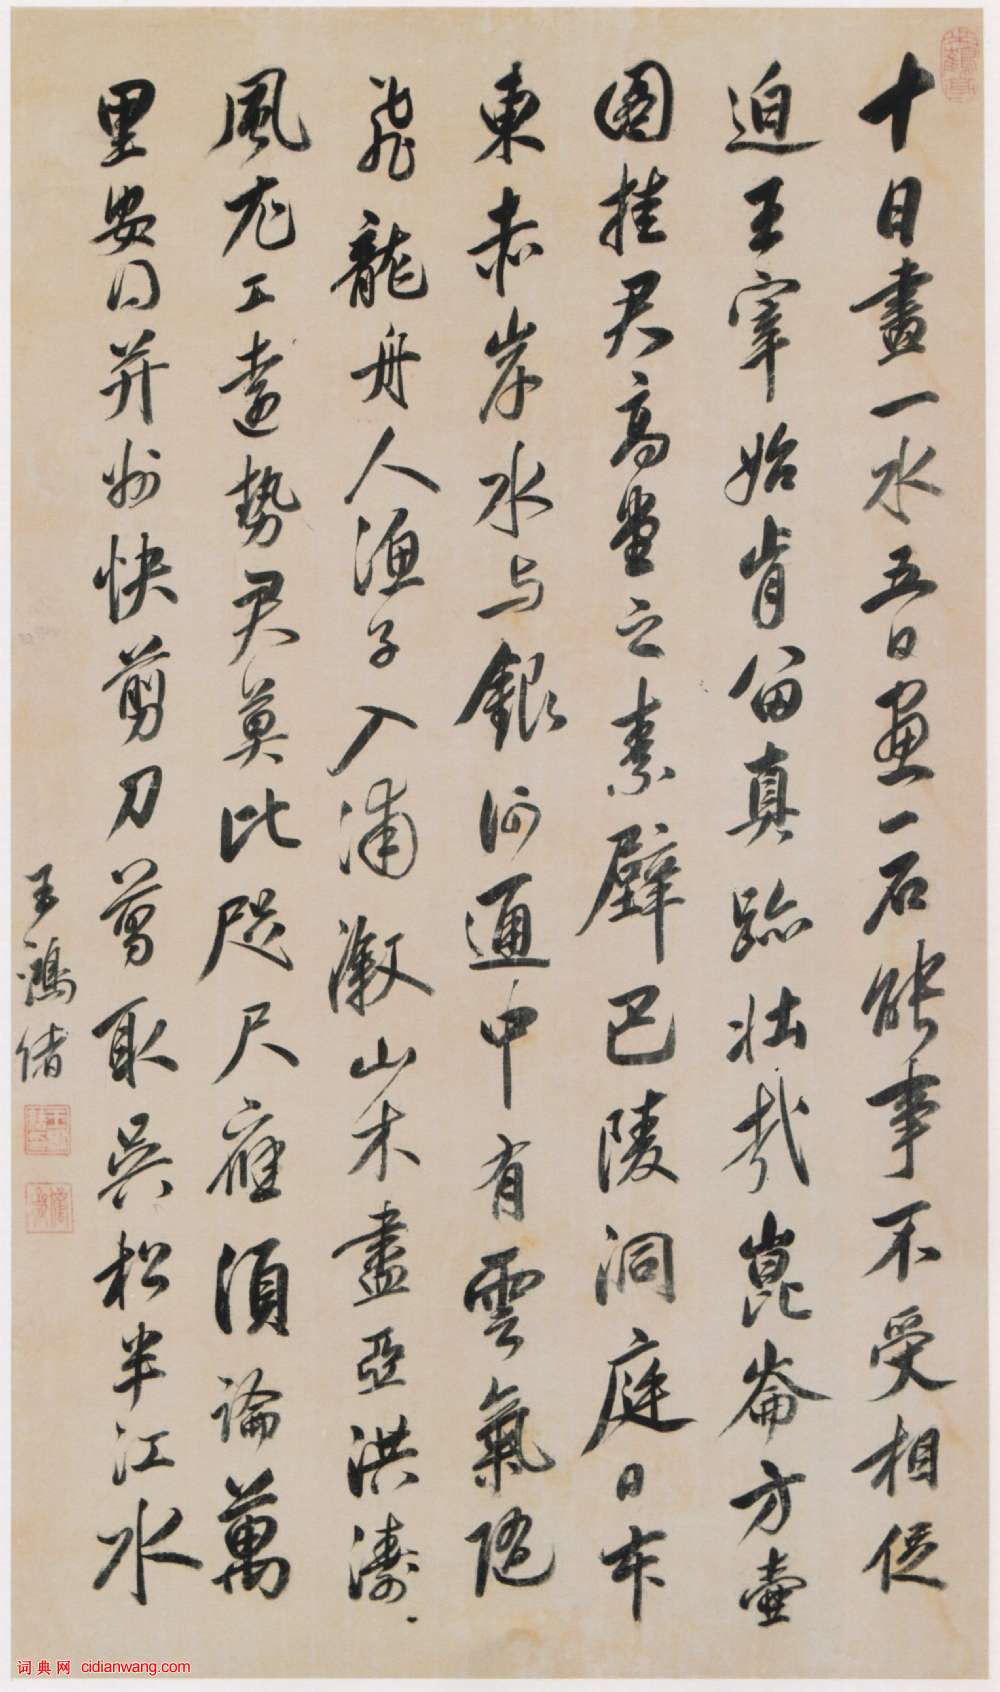 十日畫一水五日畫一石能事不受相促
迫王宰始肯留真跡壯哉崑崙方壺
圖挂君高堂之素壁巴陵洞庭日本
東赤岸水与銀河通中有雲氣隨
飛龍舟人漁子入浦漵山木盡亞洪濤
風尤工遠勢君莫比咫尺應須論萬
里安得并州快剪刀剪取吳松半江水
王鴻緒
词典网 cidianwang.com